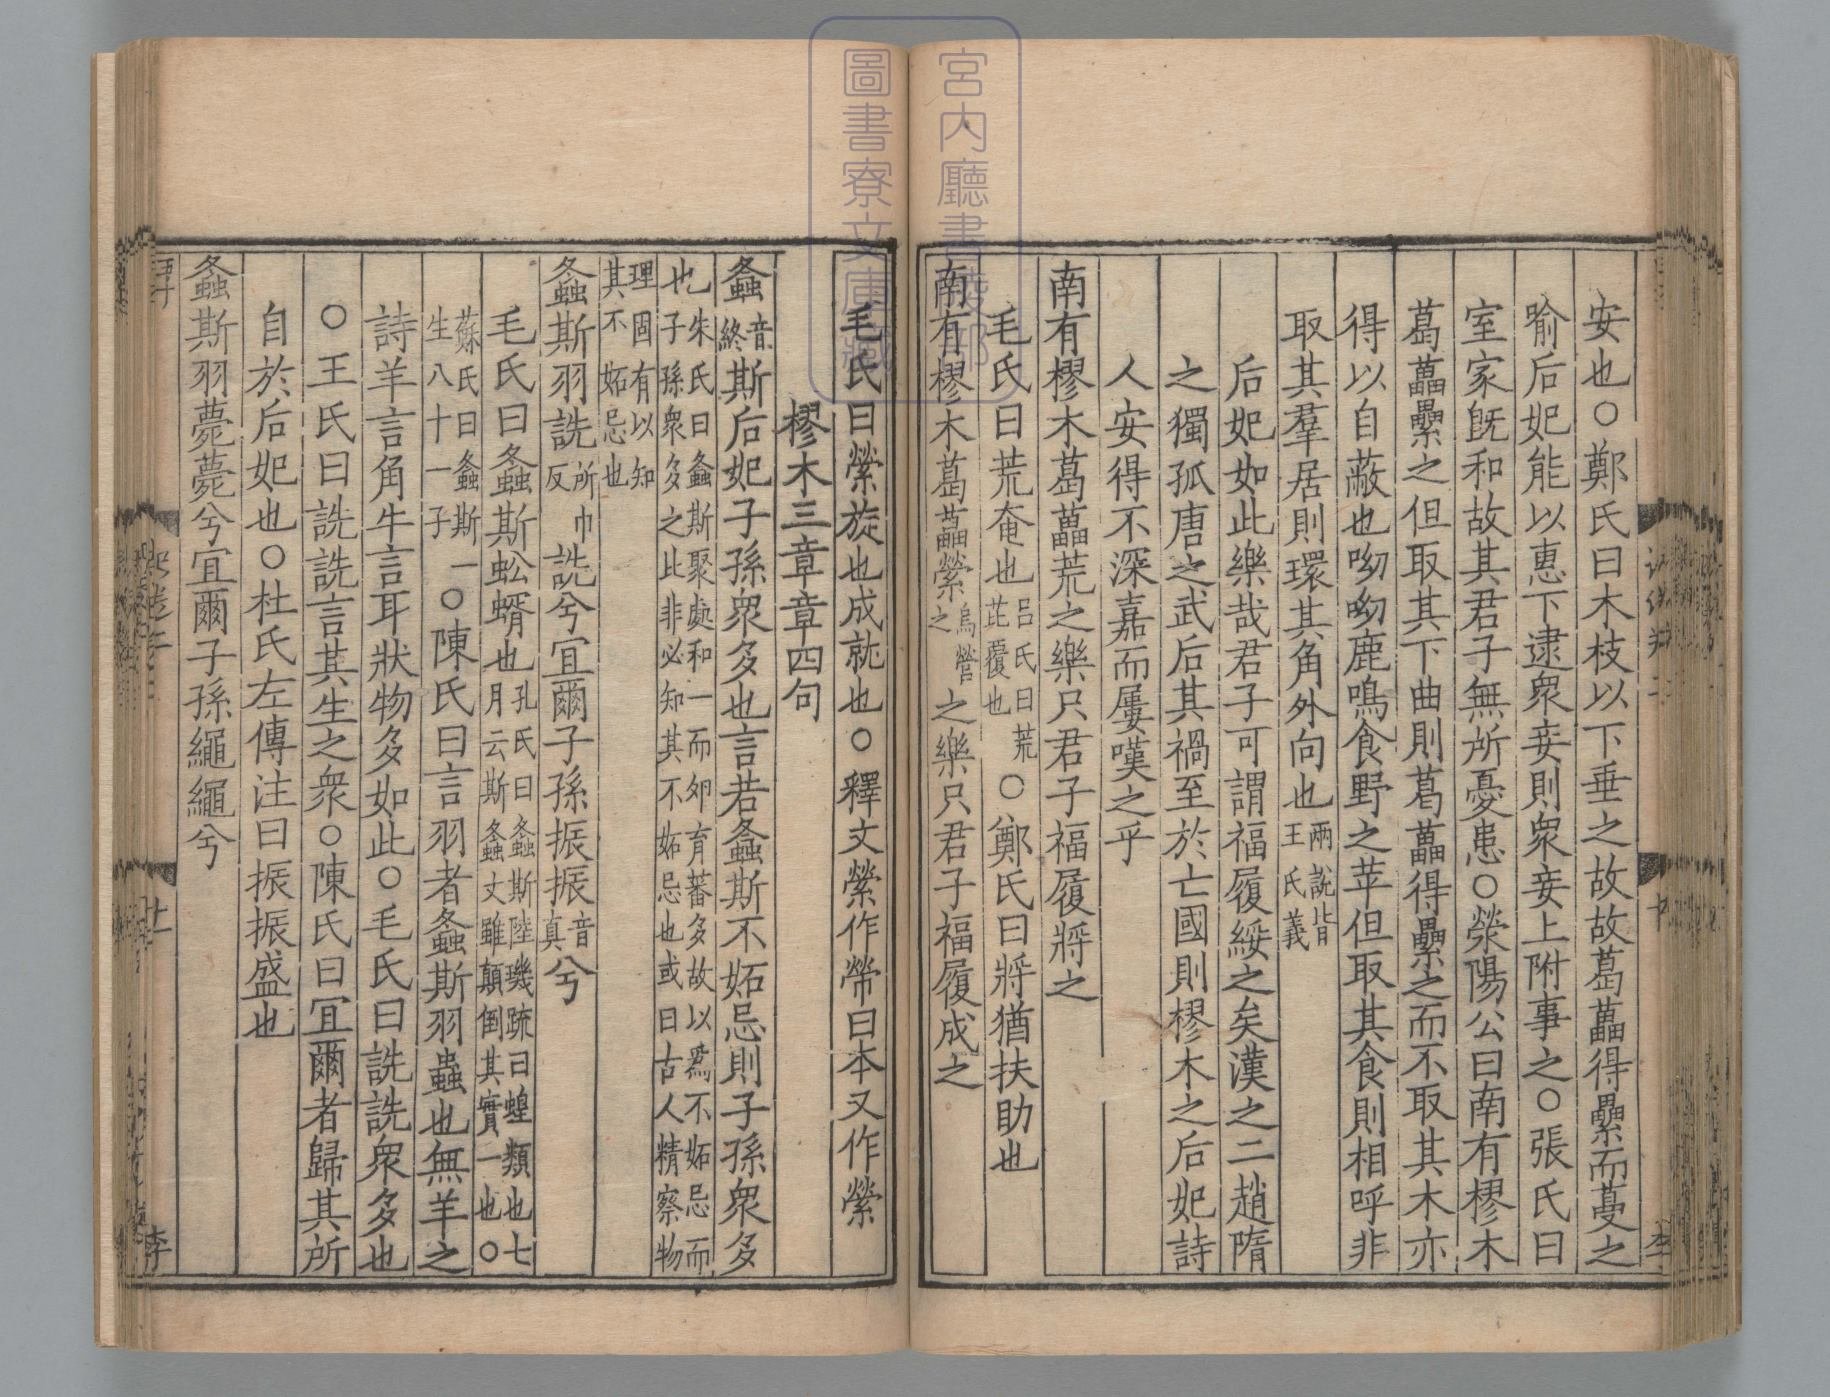 安也○鄭氏曰木枝以下垂之故故葛藟得纍而蔓之
喻后妃能以惠下逮衆妾則衆妾上附事之○張氏曰
室家旣和故其君子無所憂患○滎陽公曰南有樛木
葛藟纍之但取其下曲則葛藟得纍之而不取其木亦
得以自蔽也呦呦鹿鳴食野之苹但取其食則相呼非
取其羣居則環其角外向也兩說皆王氏義
后妃如此樂哉君子可謂福履綏之矣漢之二趙隋
之獨孤唐之武后其禍至於亡國則樛木之后妃詩
人安得不深嘉而屢嘆之乎
南有樛木葛藟荒之樂只君子福履將之
毛氏曰荒奄也呂氏曰荒芘覆也○鄭氏曰將猶扶助也
南有樛木葛藟縈烏營之之樂只君子福履成之
毛氏曰縈旋也成就也○釋文縈作帶曰本又作縈
樛木三章章四句
螽音終斯后妃子孫衆多也言若螽斯不妬忌則子孫衆多
也朱氏曰螽斯聚處和一而卵育蕃多故以爲不妬忌而
子孫衆多之比非必知其不妬忌也或曰古人精察物
理固有以知其不妬忌也
螽斯羽詵所巾反詵兮宜爾子孫振振音真兮
毛氏曰螽斯蚣蝑也孔氏曰螽斯陸璣疏曰蝗類也七月云斯螽文雖顛倒其實一也○
蘇氏曰螽斯一生八十一子○陳氏曰言羽者螽斯羽蟲也無羊之
詩羊言角牛言耳狀物多如此○毛氏曰詵詵衆多也
○王氏曰詵詵言其生之衆○陳氏曰宜爾者歸其所
自於后妃也○杜氏左傳注曰振振盛也
螽斯羽薨薨兮宜爾子孫繩繩兮
宮内廳書陵部
圖書寮文庫藏